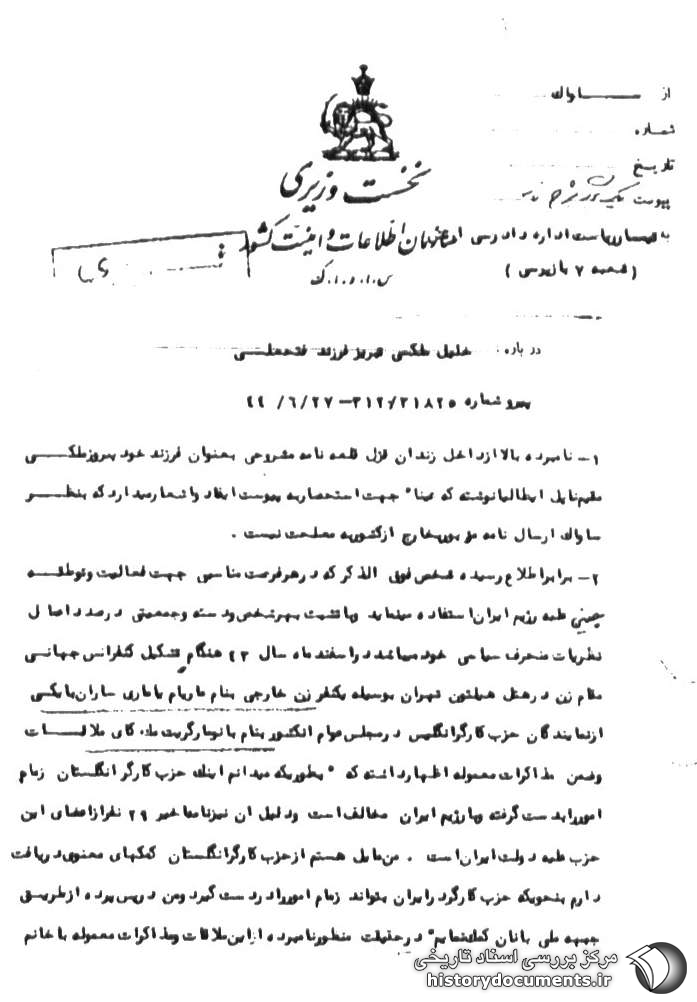 از ساواک
شماره
تاریخ
پیوست
نخست وزیری
سازمان اطلاعات و امنیت کشور
س.ا.و.ا.ک
به تیمسار ریاست اداره دادرسی
(شعبه ۷ بازپرسی)
درباره: خلیل ملکی تبریز فرزند فتحعلی
پیرو شماره ۳۱۲/۳۱۸۲۵ – ۴۴/۶/۲۷
۱– نامبرده بالا از داخل زندان قزل قلعه نامه مشروحی بعنوان فرزند خود پیروز ملکی
مقیم ناپل ایطالیا نوشته که عینا" جهت استحضار به پیوست ایفاد و اشعار میدارد که بنظر
ساواک ارسال نامه مزبور بخارج از کشور به مصلحت نیست .
۲– برابر اطلاع رسیده شخص فوق الذکر که در هر فرصت مناسبی جهت فعالیت و توطئه
چینی علیه رژیم ایران استفاده مینماید و با تشبث بهر شخص و دسته و جمعیتی درصدد اعمال
نظریات منحرف سیاسی خود میباشد در اسفند ماه سال ۴۳ هنگام تشکیل کنفرانس جهانی
مقام زن در هتل هیلتون تهران بوسیله یکنفر زن خارجی بنام
از نمایندگان حزب کارگر انگلیس در مجلس عوام انکشور بنام بانو مارگریت مک کای ملاقات
وضمن مذاکرات معموله اظهار داشته که " بطوریکه میدانم اینک حزب کارگر انگلستان زمام
امور را بدست گرفته و با رژیم ایران مخالف است ودلیل ان نیز نامه اخیر ۲۹ نفر از اعضای این
حزب علیه دولت ایران است . من مایل هستم از حزب کارگر انگلستان کمکهای معنوی دریافت
دارم بنحویکه حزب کارگر در ایران بتواند زمام امور را در دست گیرد ومن در پس پرده از طریق
جبهه ملی بانان کمک نمایم" در حقیقت منظور نامبرده از این ملاقات و مذاکرات معموله با خانم
مرکز بررسی اسناد تاریخی
historydocuments.ir